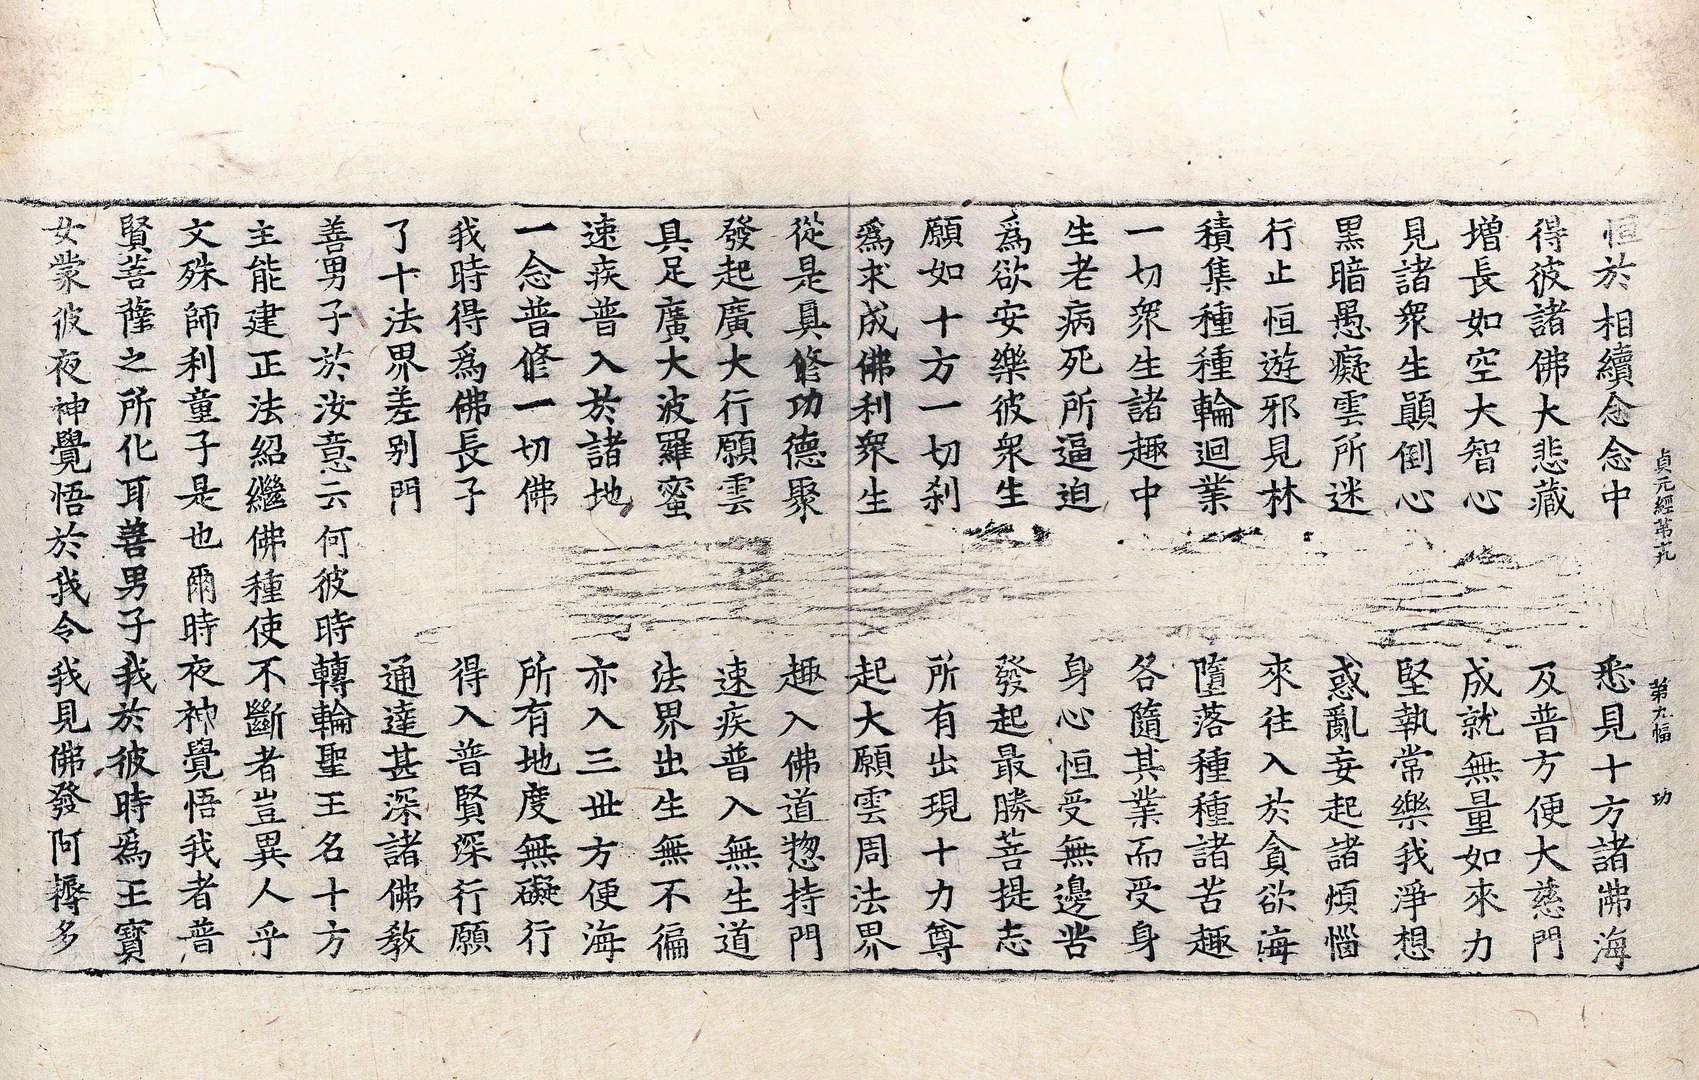 貞元經第十九 第九幅 功
恒於相續念念中 悉見十方諸佛海
得彼諸佛大悲藏 及普方便大慈門
增長如空大智心 成就無量如來力
見諸衆生顚倒心 堅執常樂我淨想
黑暗愚癡雲所迷 惑亂妄起諸煩惱
行止恒遊邪見林 來往入於貪欲海
積集種種輪迴業 墮落種種諸苦趣
一切衆生諸趣中 各隨其業而受身
生老病死所逼迫 身心恒受無邊苦
爲欲安樂彼衆生 發起最勝菩提志
願如十方一切刹 所有出現十力尊
爲求成佛利衆生 起大願雲周法界
從是眞修功德聚 趣入佛道惣持門
發起廣大行願雲 速疾普入無生道
具足廣大波羅蜜 法界出生無不徧
速疾普入於諸地 亦入三世方便海
一念普修一切佛 所有地度無礙行
我時得爲佛長子 得入普賢深行願
了十法界差别門 通達甚深諸佛教
善男子於汝意云何彼時轉輪聖王名十方
主能建正法紹繼佛種使不斷者豈異人乎
文殊師利童子是也爾時夜神覺悟我者普
賢菩薩之所化耳善男子我於彼時爲王寶
女蒙彼夜神覺悟於我令我見佛發阿耨多